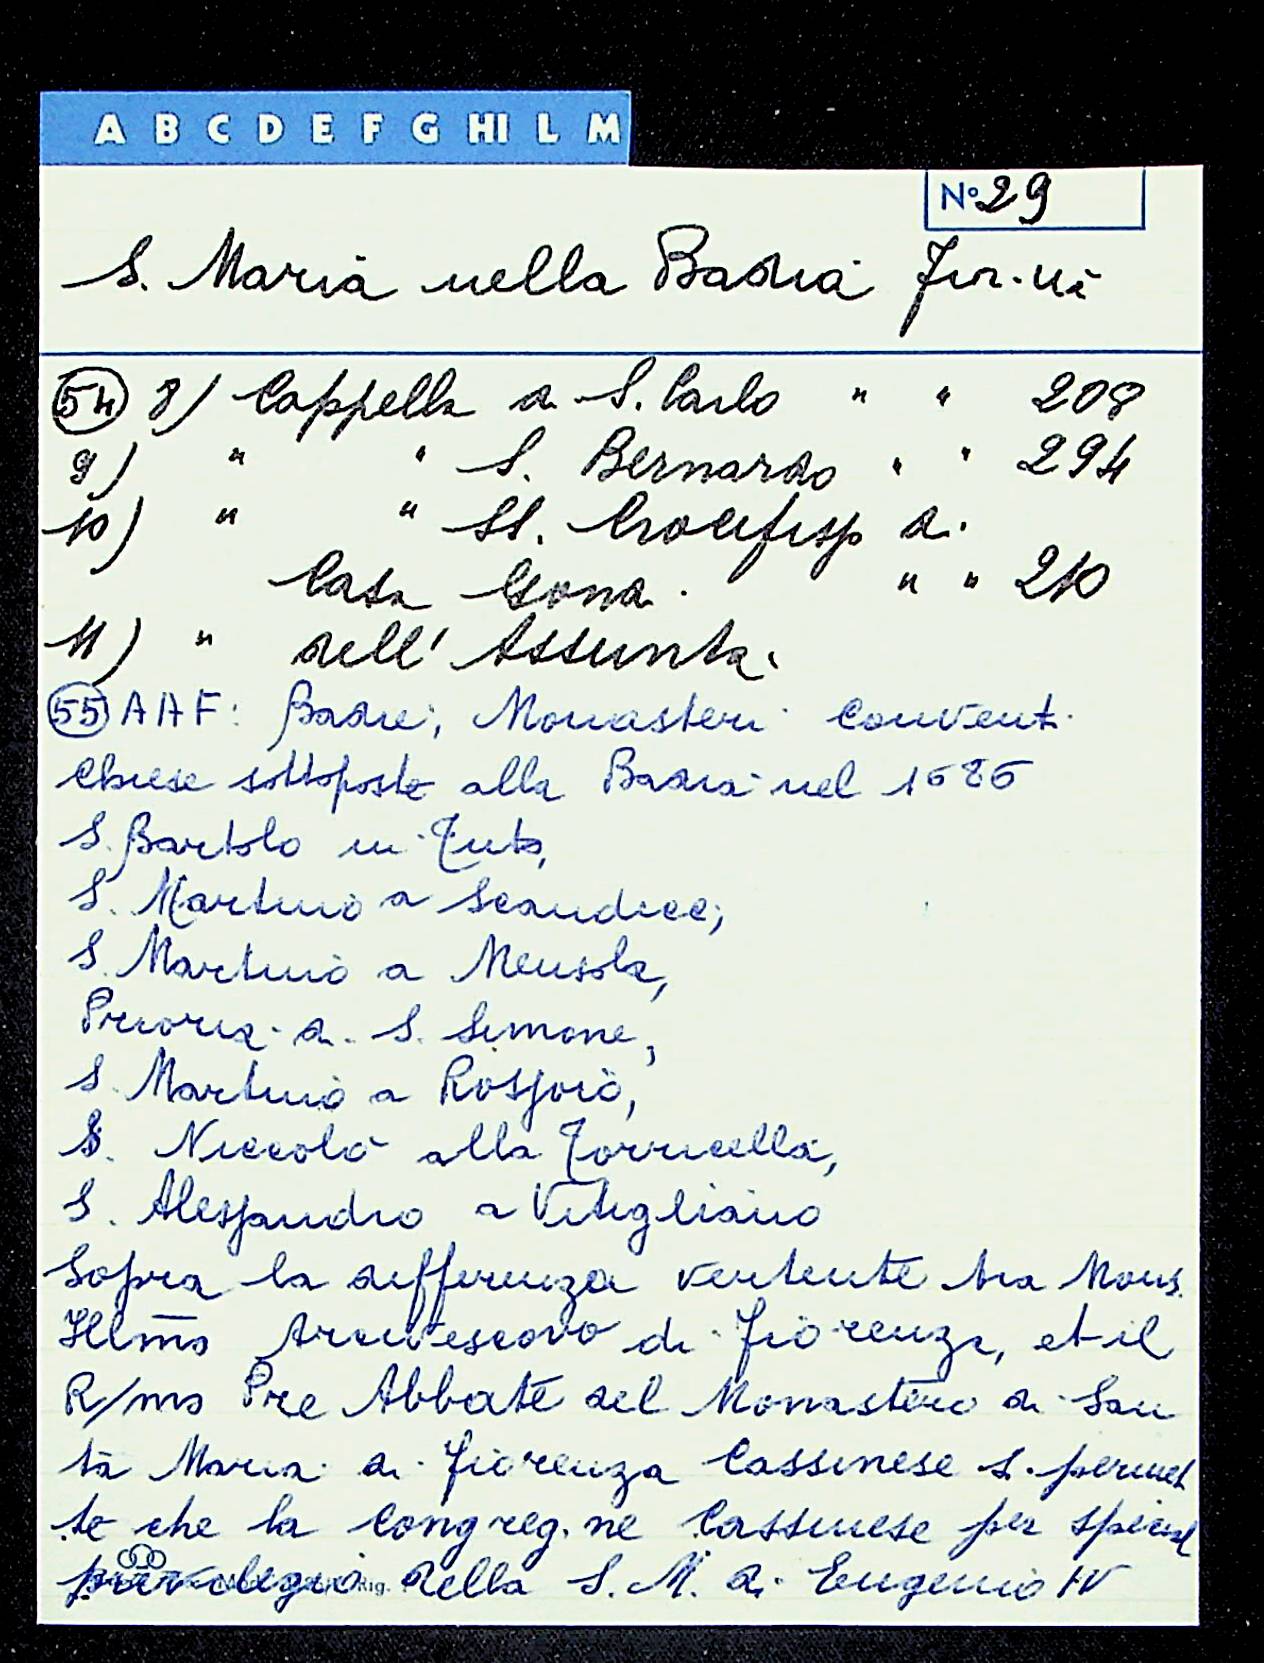 A B C D E F G HI L M
N° 29
S. Maria nella Badia Fior.na
54 8) Cappella di S. Carlo " " 208
9) " " S. Bernardo " " 294
10) " " SS. Crocifisso di
Casa " " 210
11) " dell' Assunta.
55 AAF: Badie, Monasteri Conventi
Chiese sottoposte alla Badia nel 1686
S. Bartolo in Tuto,
S. Martino a Scandicci,
S. Martino a Mensola,
Prioria di S. Simone,
S. Martino a Rosjoio,
S. Niccolò alla Torricella,
S. Alessandro a Vitigliano
Sopra la differenza vertente tra Mons.
Illmo Arcivescovo di Fiorenza, et il
R/mo Pre Abbate del Monastero di San
ta Maria di Fiorenza Cassinese si permet
te che la Congreg.ne Cassinese per special
privilegio della S. M. di Eugenio IV